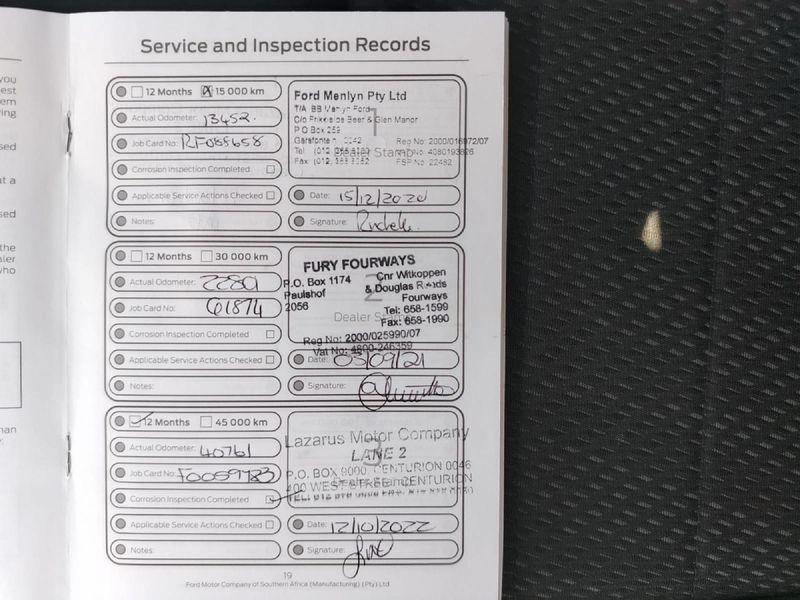 Service and Inspection Records
12 Months 15 000 km
Actual Odometer: 13452.
Job Card No:
Corrosion Inspection Completed
Applicable Service Actions Checked
Notes:
Ford Menlyn Pty Ltd
T/A BB Menlyn Ford
P O Box 259
Garsfontein 0042
Reg No: 2000/016972/07
1
Dealer Stamp
Date: 15/12/2020
Signature:
12 Months 30 000 km
Actual Odometer:
Job Card No: 61874
Corrosion Inspection Completed
Applicable Service Actions Checked
Notes:
FURY FOURWAYS
P.O. Box 1174
Paulshof
2056
Cnr Witkoppen
& Douglas Roads
Fourways
Tel: 658-1599
Fax: 658-1990
2
Dealer Stamp
Reg No: 2000/025990/07
Vat No: 4800-246359
Date: 03/09/21
Signature:
12 Months 45 000 km
Actual Odometer: 40761
Job Card No: F0059783
Corrosion Inspection Completed
Applicable Service Actions Checked
Notes:
Lazarus Motor Company
LANE 2
3
P.O. BOX 9000, CENTURION 0046
400 WEST STREET, CENTURION
Date: 12/10/2022
Signature:
19
Ford Motor Company of Southern Africa (Manufacturing) (Pty) Ltd